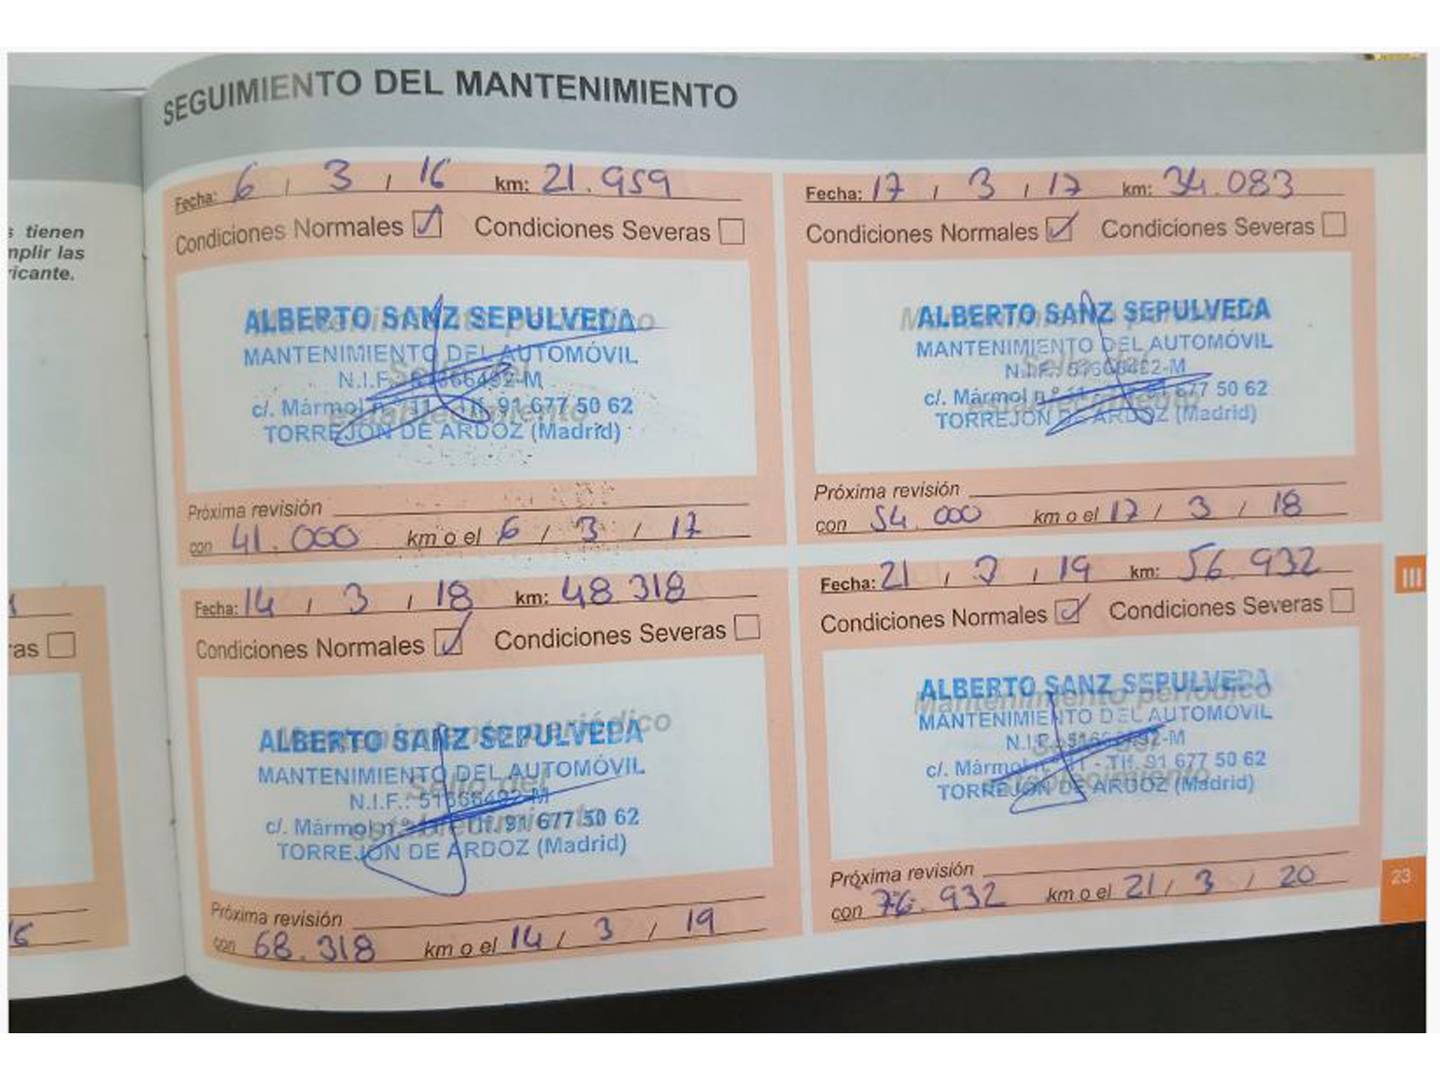 SEGUIMIENTO DEL MANTENIMIENTO
s tienen
mplir las
ricante.
ras
Fecha: 6 / 3 / 16 km: 21.959
Condiciones Normales Condiciones Severas
Mantenimiento periódico
Sello del
establecimiento
ALBERTO SANZ SEPULVEDA
MANTENIMIENTO DEL AUTOMÓVIL
N.I.F.
c/. Mármol n.º 11 - Tlf. 91 677 50 62
TORREJÓN DE ARDOZ (Madrid)
Próxima revisión
con 41.000 km o el 6 / 3 / 17
Fecha: 17 / 3 / 17 km: 34.083
Condiciones Normales Condiciones Severas
Mantenimiento periódico
Sello del
establecimiento
ALBERTO SANZ SEPULVEDA
MANTENIMIENTO DEL AUTOMÓVIL
N.I.F.
c/. Mármol n.º 11 - Tlf. 91 677 50 62
TORREJÓN DE ARDOZ (Madrid)
Próxima revisión
con 54.000 km o el 17 / 3 / 18
Fecha: 14 / 3 / 18 km: 48.318
Condiciones Normales Condiciones Severas
Mantenimiento periódico
Sello del
establecimiento
ALBERTO SANZ SEPULVEDA
MANTENIMIENTO DEL AUTOMÓVIL
N.I.F.:
c/. Mármol n.º 11 - Tlf. 91 677 50 62
TORREJÓN DE ARDOZ (Madrid)
Próxima revisión
con 68.318 km o el 14 / 3 / 19
Fecha: 21 / 3 / 19 km: 56.932
Condiciones Normales Condiciones Severas
Mantenimiento periódico
Sello del
establecimiento
ALBERTO SANZ SEPULVEDA
MANTENIMIENTO DEL AUTOMÓVIL
N.I.F.
c/. Mármol n.º 11 - Tlf. 91 677 50 62
TORREJÓN DE ARDOZ (Madrid)
Próxima revisión
con 76.932 km o el 21 / 3 / 20
III
23